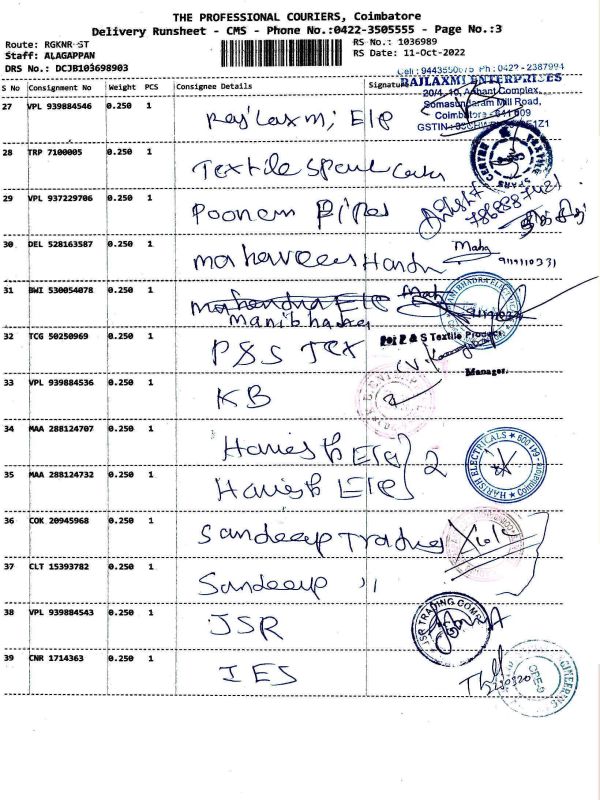 THE PROFESSIONAL COURIERS, Coimbatore
Delivery Runsheet - CMS - Phone No.:0422-3505555 - Page No.:3
Route: RGKNR-ST RS No.: 1036989
Staff: ALAGAPPAN RS Date: 11-Oct-2022
DRS No.: DCJB103698903
Cell: 9443550675 Ph: 0422 - 2387994
S No Consignment No Weight PCS Consignee Details Signature
RAJLAXMI ENTERPRISES
20/4, 10, Arihant Complex,
Somasundaram Mill Road,
Coimbatore - 641 009
GSTIN :
27 VPL 939884546 0.250 1 Rajlaxmi Ele
28 TRP 7100005 0.250 1 Textile Spare
TEXTILE SPARS CENTRE
29 VPL 937229706 0.250 1 Poonam Pipes
30 DEL 528163587 0.250 1 mahaveer Hardw Maha
31 BWI 530054078 0.250 1 Mahendra Ele Mah
manibhadra
MANIBHADRA ELECTRICALS
32 TCG 50250969 0.250 1 P&S Tex
For P & S Textile Product
Manager.
33 VPL 939884536 0.250 1 KB
34 MAA 288124707 0.250 1 Harish Ele 2
HARISH ELECTRICALS Coimbatore - 641 009
35 MAA 288124732 0.250 1 Harish Ele
36 COK 20945968 0.250 1 Sandeep Trading
37 CLT 15393782 0.250 1 Sandeep "
38 VPL 939884543 0.250 1 JSR
JSR TRADING COMPANY
39 CNR 1714363 0.250 1 IES
CBE-9